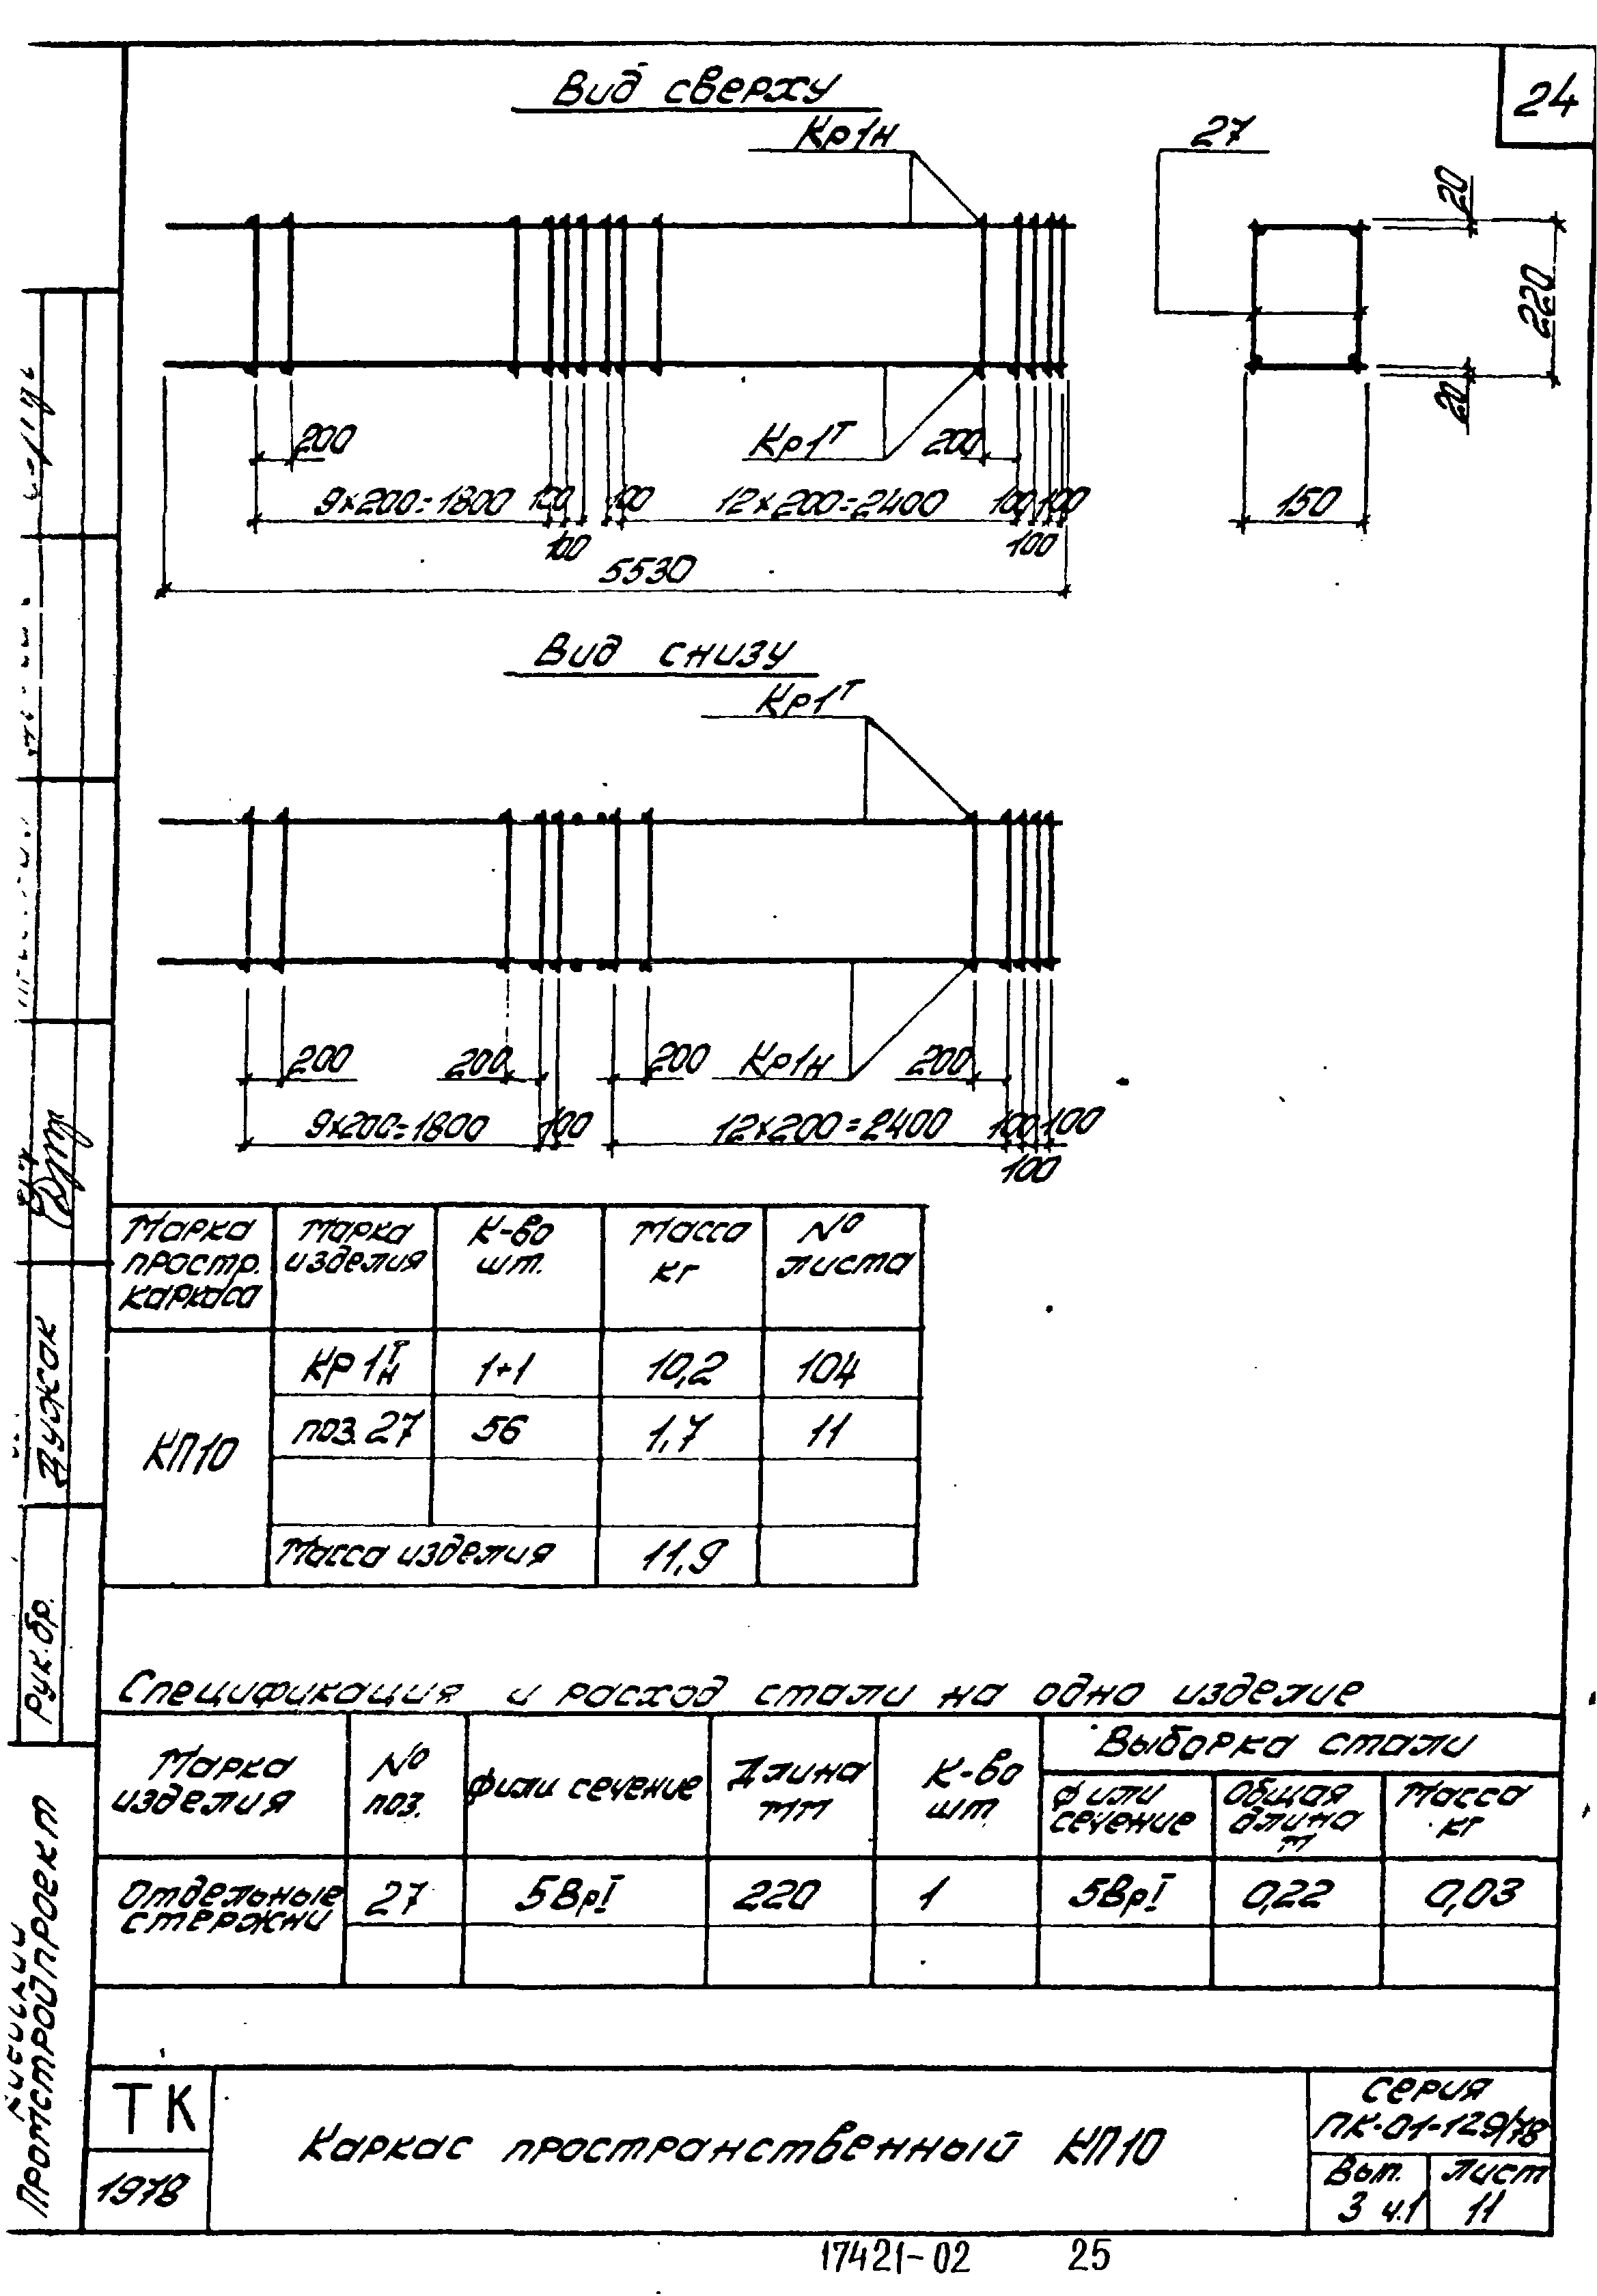 24
Вид сверху
Кр1н
27
20
220
20
150
200
Кр1т
200
9×200=1800
100
100
12×200=2400
100
100
100
100
5530
Вид снизу
Кр1т
200
200
200
Кр1н
200
9×200=1800
100
12×200=2400
100
100
100
Марка простр. каркаса
Марка изделия
К-во шт.
Масса кг
№ листа
КП10
КР 1 т н
1+1
10,2
104
поз. 27
56
1,7
11
Масса изделия
11,9
Спецификация и расход стали на одно изделие
Марка изделия
№ поз.
ф или сечение
Длина мм
К-во шт
Выборка стали
ф или сечение
Общая длина м
Масса кг
Отдельные стержни
27
5ВрI
220
1
5ВрI
0,22
0,03
Рук. бр.
Дужак
Промстройпроект
ТК
1978
Каркас пространственный КП10
Серия
ПК-01-129/78
Вып.
3 ч.1
Лист
11
17421-02
25